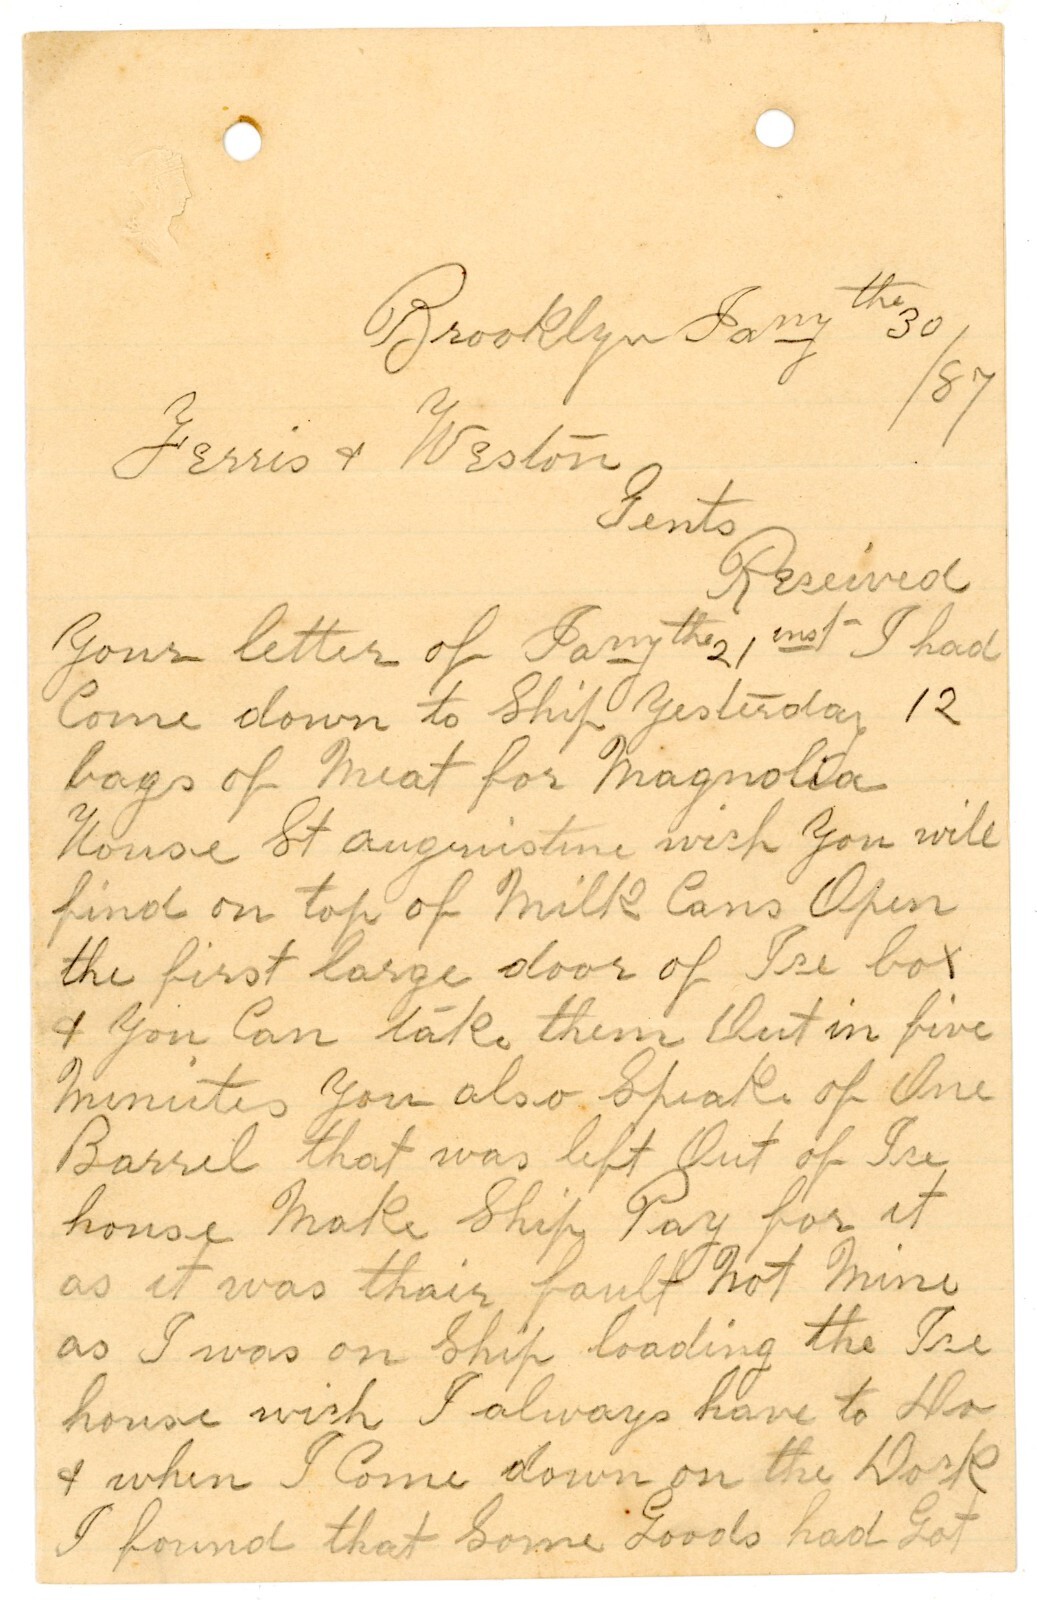 Brooklyn Jany the 30
/87
Ferris & Weston
Gents
Reseived
Your letter of Jany the 21 inst I had
Come down to Ship Yesterday 12
bags of Meat for Magnolia
House St auguistine wich You will
find on top of Milk Cans Open
the first large door of Ise box
& You Can take them Out in five
Minutes You also Speak of One
Barrel that was left Out of Ise
house Make Ship Pay for it
as it was thair fault Not Mine
as I was on Ship loading the Ise
house wich I always have to Do
& when I Come down on the Dock
I found that Some Goods had Got